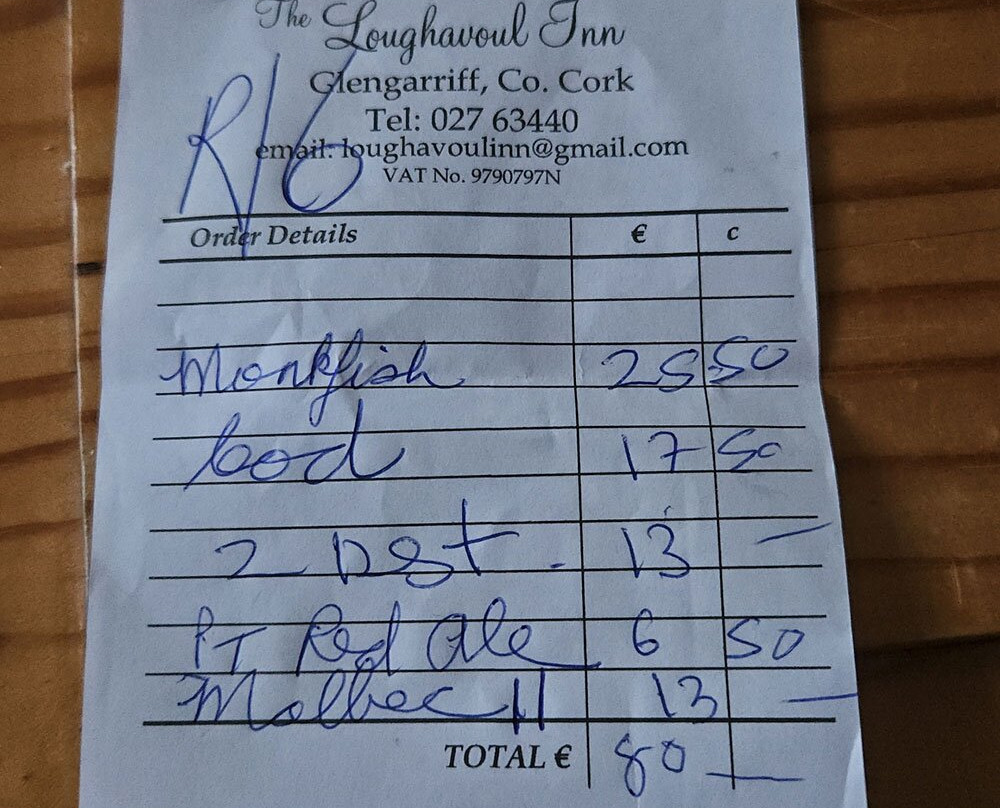 The Loughavoul Inn
Glengarriff, Co. Cork
Tel: 027 63440
email: loughavoulinn@gmail.com
VAT No. 9790797N
R/6
Order Details € c
Monkfish 25 50
Cod 17 50
2 Dst. 13 —
PT Red Ale 6 50
Malbec 11 13 —
TOTAL € 80 —